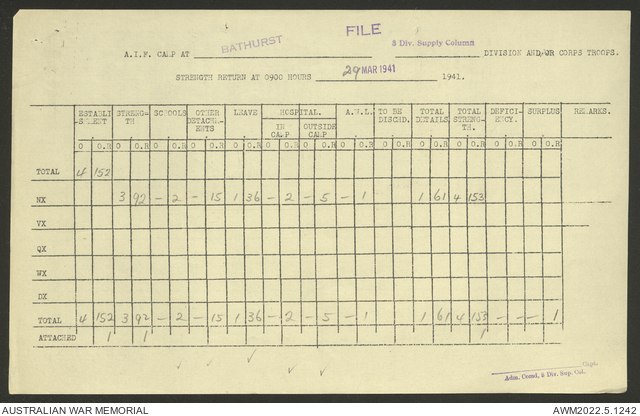 FILE
A.I.F. CAMP AT BATHURST 8 Div. Supply Column DIVISION AND/OR CORPS TROOPS.
STRENGTH RETURN AT 0900 HOURS 29 MAR 1941 1941.
ESTABLI STRENG- SCHOOLS OTHER LEAVE HOSPITAL. A.W.L. TO BE TOTAL TOTAL DEFICI- SURPLUS REMARKS.
-SHMENT TH DETACHM- IN OUTSIDE DISCHD. DETAILS. STRENG- ENCY.
ENTS CAMP CAMP TH.
O O.R O O.R O O.R O O.R O O.R O O.R O O.R O O.R O O.R O O.R O O.R O O.R O O.R
TOTAL 4 152
NX 3 92 - 2 - 15 1 36 - 2 - 5 - 1 1 61 4 153
VX
QX
WX
DX
TOTAL 4 152 3 92 - 2 - 15 1 36 - 2 - 5 - 1 1 61 4 153 - - - 1
ATTACHED 1 1 1
Capt.
Adm. Comd. 8 Div. Sup. Col.
AUSTRALIAN WAR MEMORIAL
AWM2022.5.1242